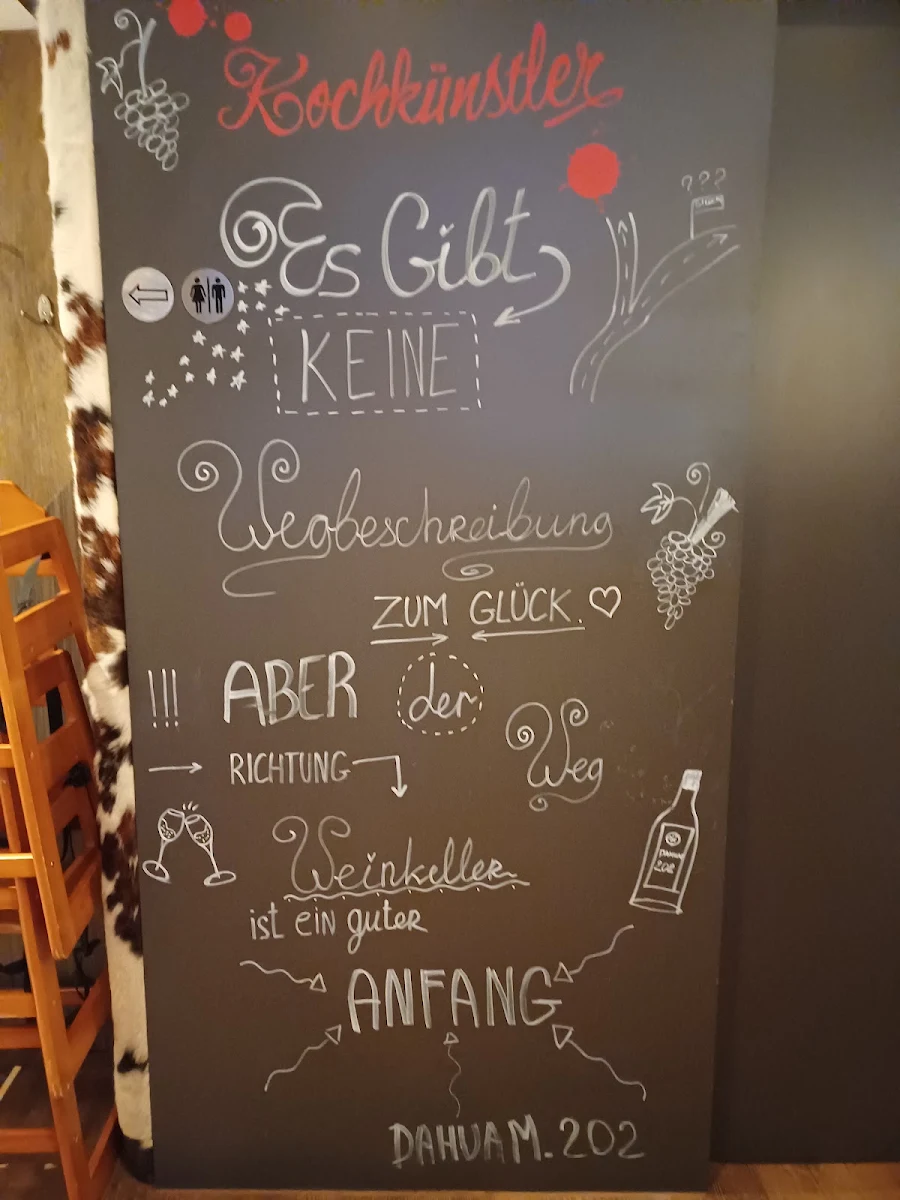 Kochkünstler
Es Gibt
???
KEINE
Wegbeschreibung
ZUM GLÜCK.
!!! ABER der
RICHTUNG
Weg
Weinkeller
DAHUAM
202
ist EIN guter
ANFANG
DAHUAM.202